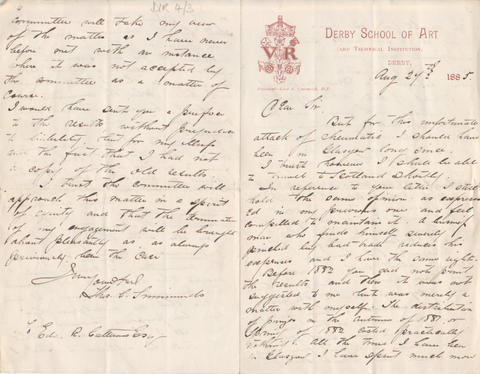 DERBY SCHOOL OF ART
(AND TECHNICAL INSTITUTION,
DERBY,
VR
Aug 27th 1885.
Dear Sir
But for this unfortunate
attack of rheumatics I should have
been in Glasgow long since.
I trust however I shall be able
to travel to Scotland shortly.
In reference to your letter I still
hold the same opinion as express
ed in my previous one and feel
compelled to maintain it. A business
man who finds himself severely
pinched by bad trade reduces his
expenses and I have the same right.
Before 1882 you did not print
the results and then it was not
suggested to me but was merely a
matter with myself. The distribution
of prizes in the autumn of 1881 or
Spring of 1882 costed practically
nothing. All the time I have been
in Glasgow I have spent much more
DIR 4/3
Committee will take my view
of the matter as I have never
before met with an instance
where it was not accepted by
the committee as a matter of
course.
I would have sent you a
to the results without prejudice
to liability but for my illness
and the fact that I had not
a copy of the old results
I trust the committee will
approach this matter in a spirit
of equity and that the termination
of my engagement will be brought
about pleasantly as as always
previously been the case
I am
Yours
Thos. C. Simmonds
Ed. R. Catterns Esq